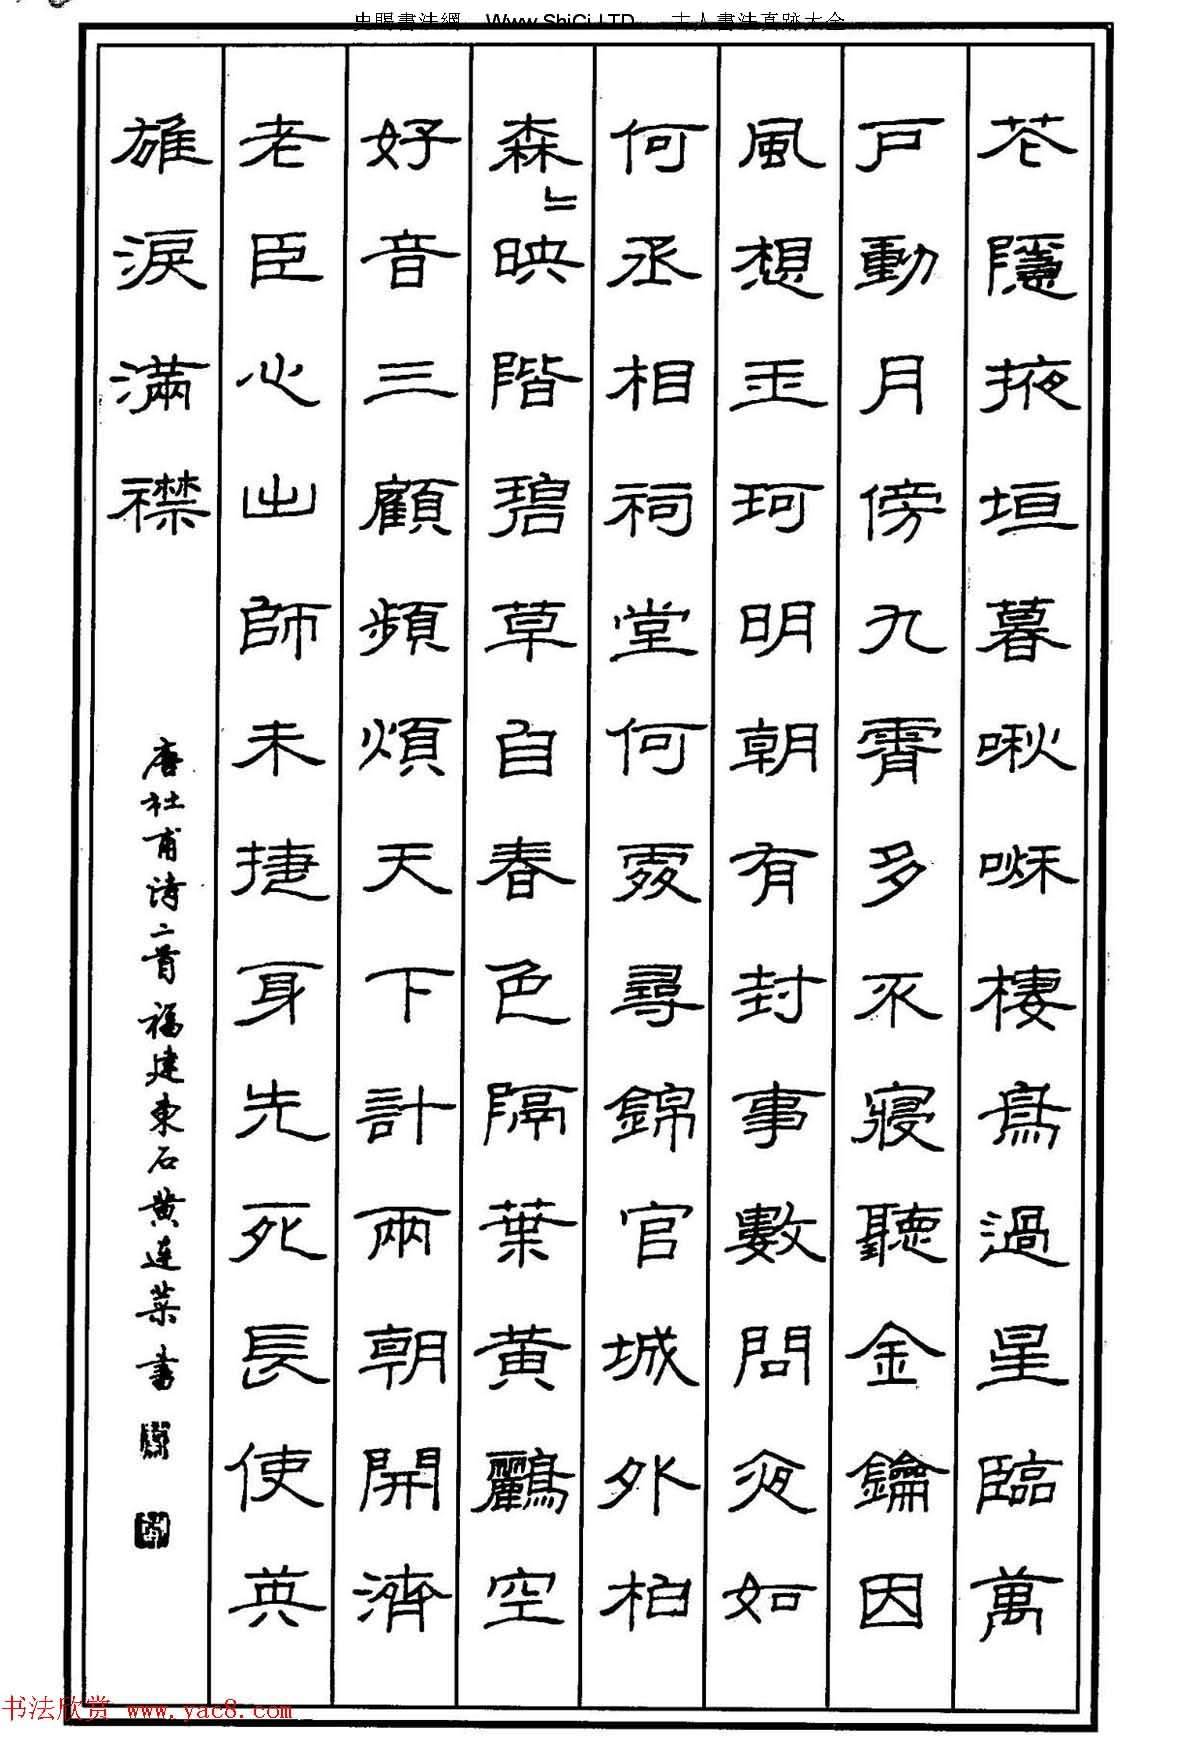 Www.ShiCi.LTD 古人書法真跡大全
花隱掖垣暮啾啾棲鳥過星臨萬
戶動月傍九霄多不寢聽金鑰因
風想玉珂明朝有封事數問夜如
何丞相祠堂何處尋錦官城外柏
森〻映階碧草自春色隔葉黃鸝空
好音三顧頻煩天下計兩朝開濟
老臣心出師未捷身先死長使英
雄淚滿襟
唐杜甫诗二首福建東石黄连菜書
书法欣赏 www.yac8.com